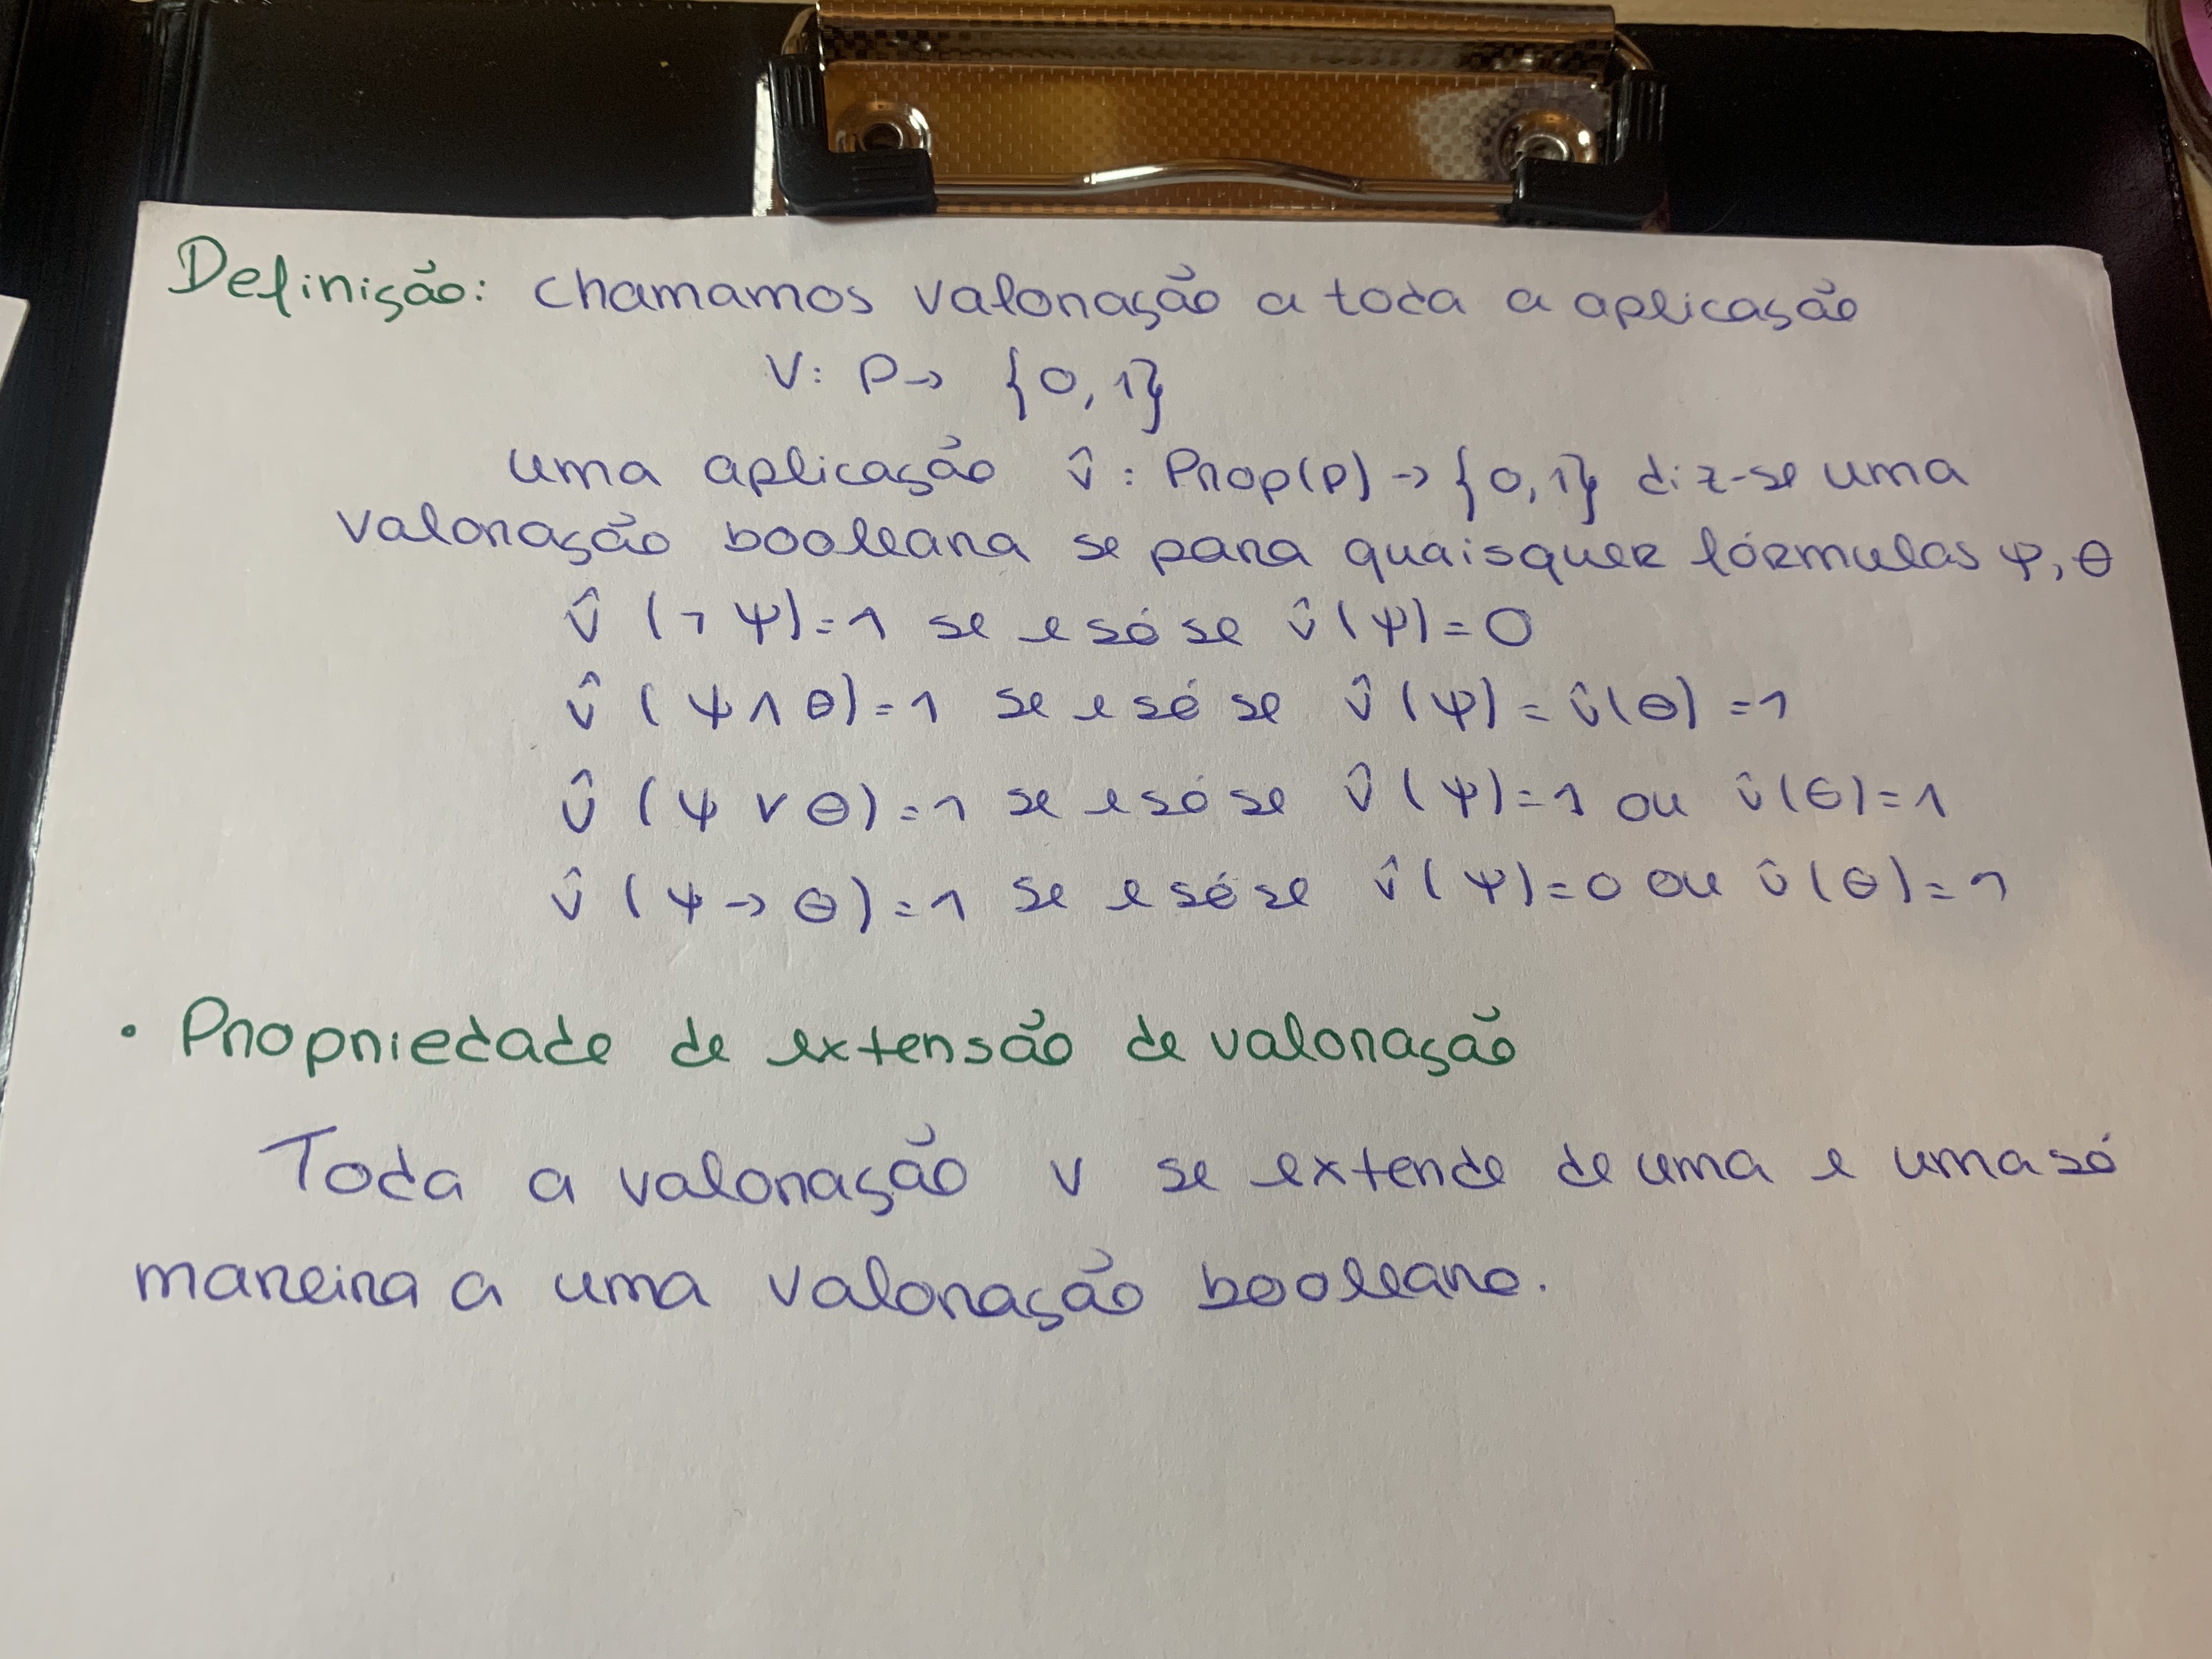 Definição: chamamos valoração a toda a aplicação
V: P → {0,1}
uma aplicação v̂ : Prop(P) → {0,1} diz-se uma
valoração booleana se para quaisquer fórmulas ψ, θ
v̂ (¬ψ)=1 se e só se v̂(ψ)=0
v̂ (ψ ∧ θ)=1 se e só se v̂(ψ) = v̂(θ) =1
v̂ (ψ ∨ θ)=1 se e só se v̂(ψ)=1 ou v̂(θ)=1
v̂ (ψ → θ)=1 se e só se v̂(ψ)=0 ou v̂(θ)=1
• Propriedade de extensão de valoração
Toda a valoração v se extende de uma e uma só
maneira a uma valoração booleana.